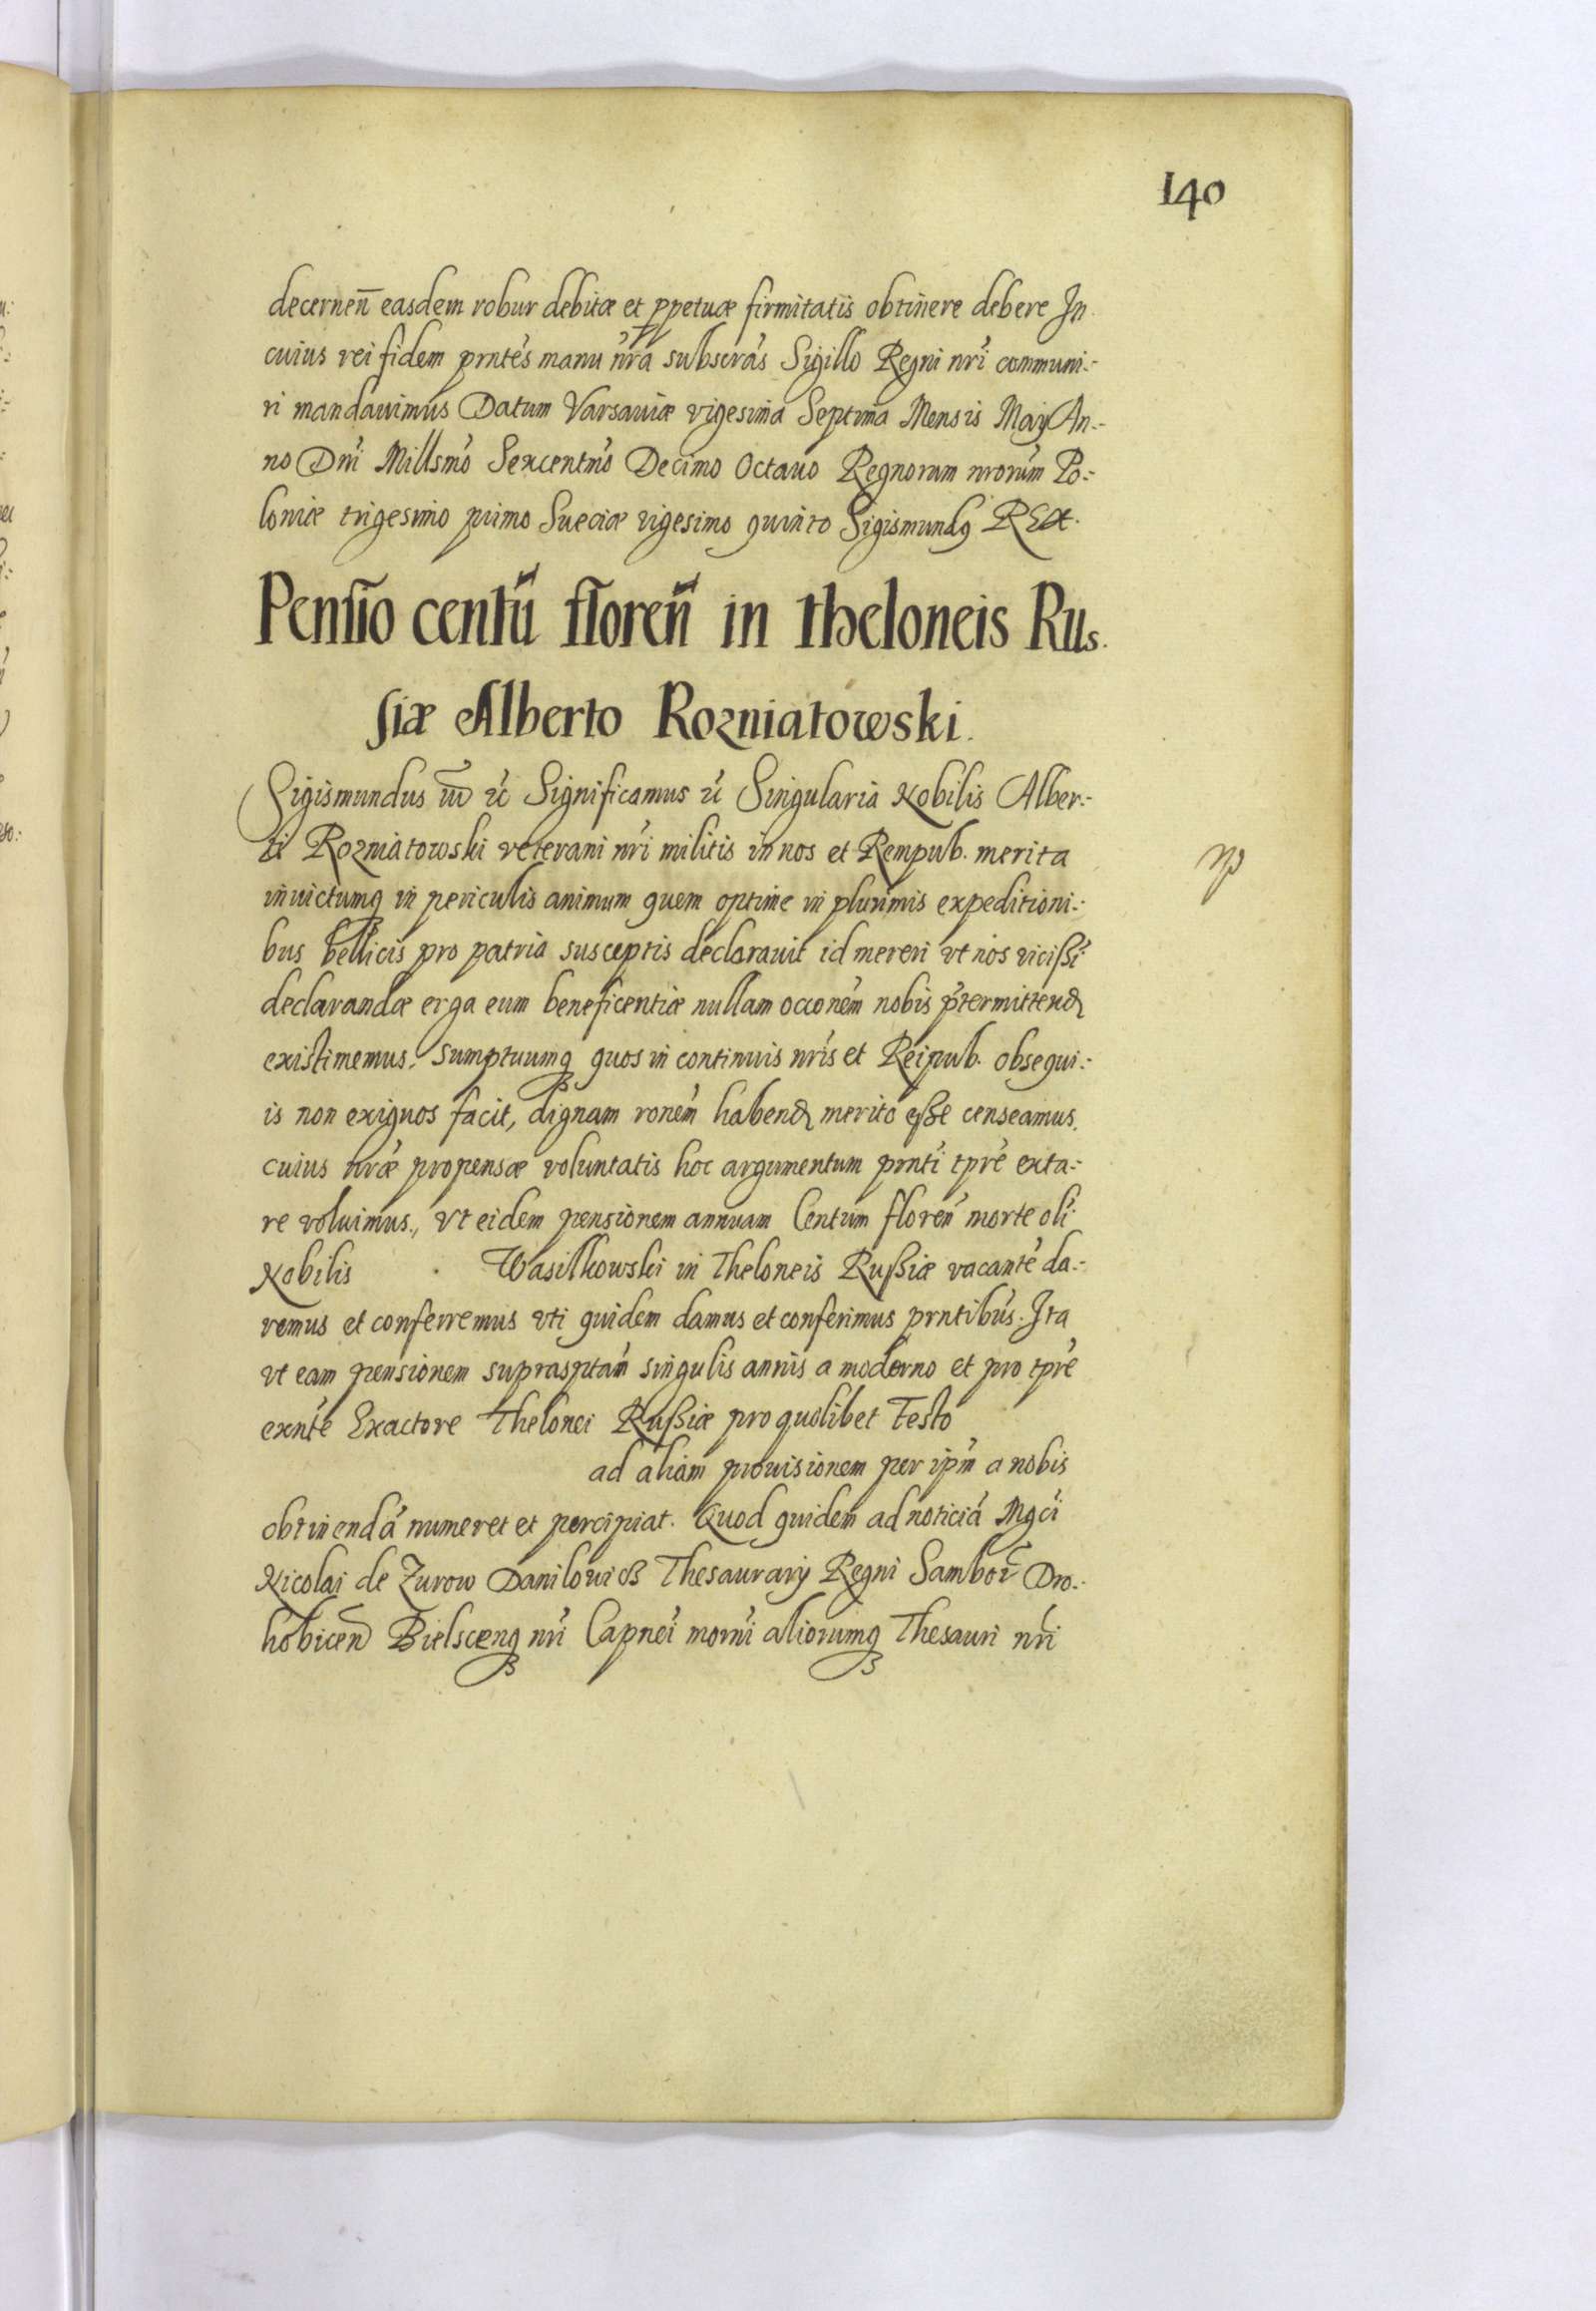 140
decernen̄ easdem robur debitæ et ꝑpetuæ firmitatis obtinere debere In
cuius rei fidem prntes manu nra subscras Sigillo Regni nri communi-
ri mandauimus Datum Varsauiæ vigesima Septima Mensis Maij An-
no Dni Millsmo Sexcentmo Decimo Octauo Regnorum nrorum Po-
loniæ trigesimo primo Sueciæ vigesimo quinto Sigismundꝯ REX.
Pensio centũ floreñ in theloneis Rus-
siæ Alberto Rozniatowski.
Sigismundus III ꝛc Significamus ꝛc Singularia Nobilis Alber-
ti Rozniatowski veterani nri militis in nos et Rempub. merita
inuictumqꝫ in periculis animum quem optime in plurimis expeditioni-
bus bellicis pro patria susceptis declarauit id mereri vt nos vicißi
declarandæ erga eum beneficentiæ nullam occonem nobis p̃termittend
existimemus. sumptuumqꝫ quos in continuis nris et Reipub. obsequi-
is non exiguos facit, dignam ronem habend merito eße censeamus,
cuius nræ propensæ voluntatis hoc argumentum prnti tpre exta-
re voluimus., vt eidem pensionem annuam Centum floren morte oli
Nobilis . Wasilkowski in Theloneis Rußiæ vacante da-
remus et conferremus vti quidem damus et conferimus prntibus. Ita
vt eam pensionem suprasptam singulis annis a moderno et pro tpre
exnte Exactore Thelonei Rußiæ pro quolibet Festo
ad aliam prouisionem per ipm a nobis
obtinendã numeret et percipiat. Quod quidem ad noticiã Mgci
Nicolai de Zurow Danilowicz Thesaurarij Regni Sambor̃ Dro-
hobicen Bielscenqꝫ nri Capnei morni aliorumqꝫ Thesauri nri